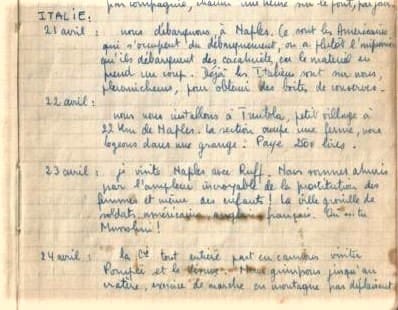 par compagnie, chacun une heure sur le pont, par jour.
ITALIE:
21 avril : nous débarquons, à Naples. Ce sont les Américains
qui s'occupent du débarquement, on a plutôt l'impression
qu'ils débarquent des cacahuètes, car le matériel en
prend un coup. Déjà les Italiens sont sur nous,
pleurnicheurs, pour obtenir des boîtes de conserves.
22 avril :
nous nous installons à petit village à
22 Km de Naples. La section occupe une ferme, nous
logeons dans une grange. Paye 2500 lires.
23 avril : je visite Naples avec Ruff. Nous sommes ahuris
par l'ampleur incroyable de la prostitution des
femmes et même, des enfants! La ville grouille de
soldats américains, anglais, français.
Mussolini!
24 avril : la Cie tout entière part en camions visiter
Pompéi et le Vésuve. Nous grimpons jusqu'au
cratère, exercice de marche en montagne pas déplaisant